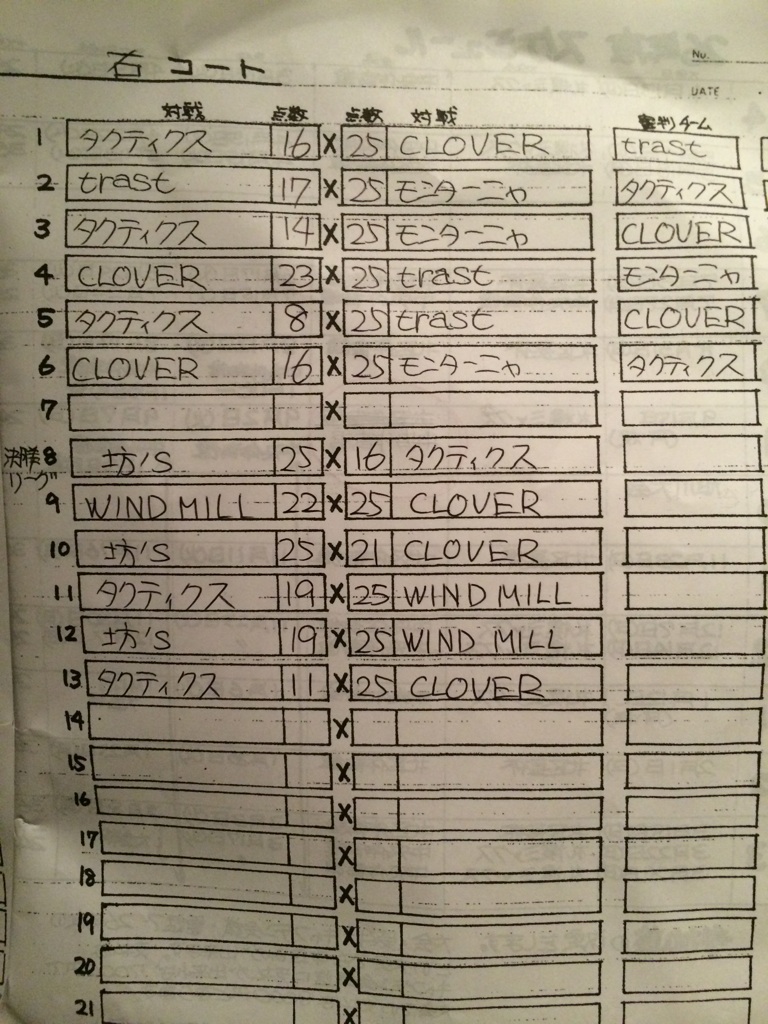 No.
右 コート
DATE
対戦 点数 点数 対戦 審判チーム
1 タクティクス 16 X 25 CLOVER trast
2 trast 17 X 25 モンターニャ タクティクス
3 タクティクス 14 X 25 モンターニャ CLOVER
4 CLOVER 23 X 25 trast モンターニャ
5 タクティクス 8 X 25 trast CLOVER
6 CLOVER 16 X 25 モンターニャ タクティクス
7 X
決勝リーグ 8 坊'S 25 X 16 タクティクス
9 WIND MILL 22 X 25 CLOVER
10 坊'S 25 X 21 CLOVER
11 タクティクス 19 X 25 WIND MILL
12 坊'S 19 X 25 WIND MILL
13 タクティクス 11 X 25 CLOVER
14 X
15 X
16 X
17 X
18 X
19 X
20 X
21 X